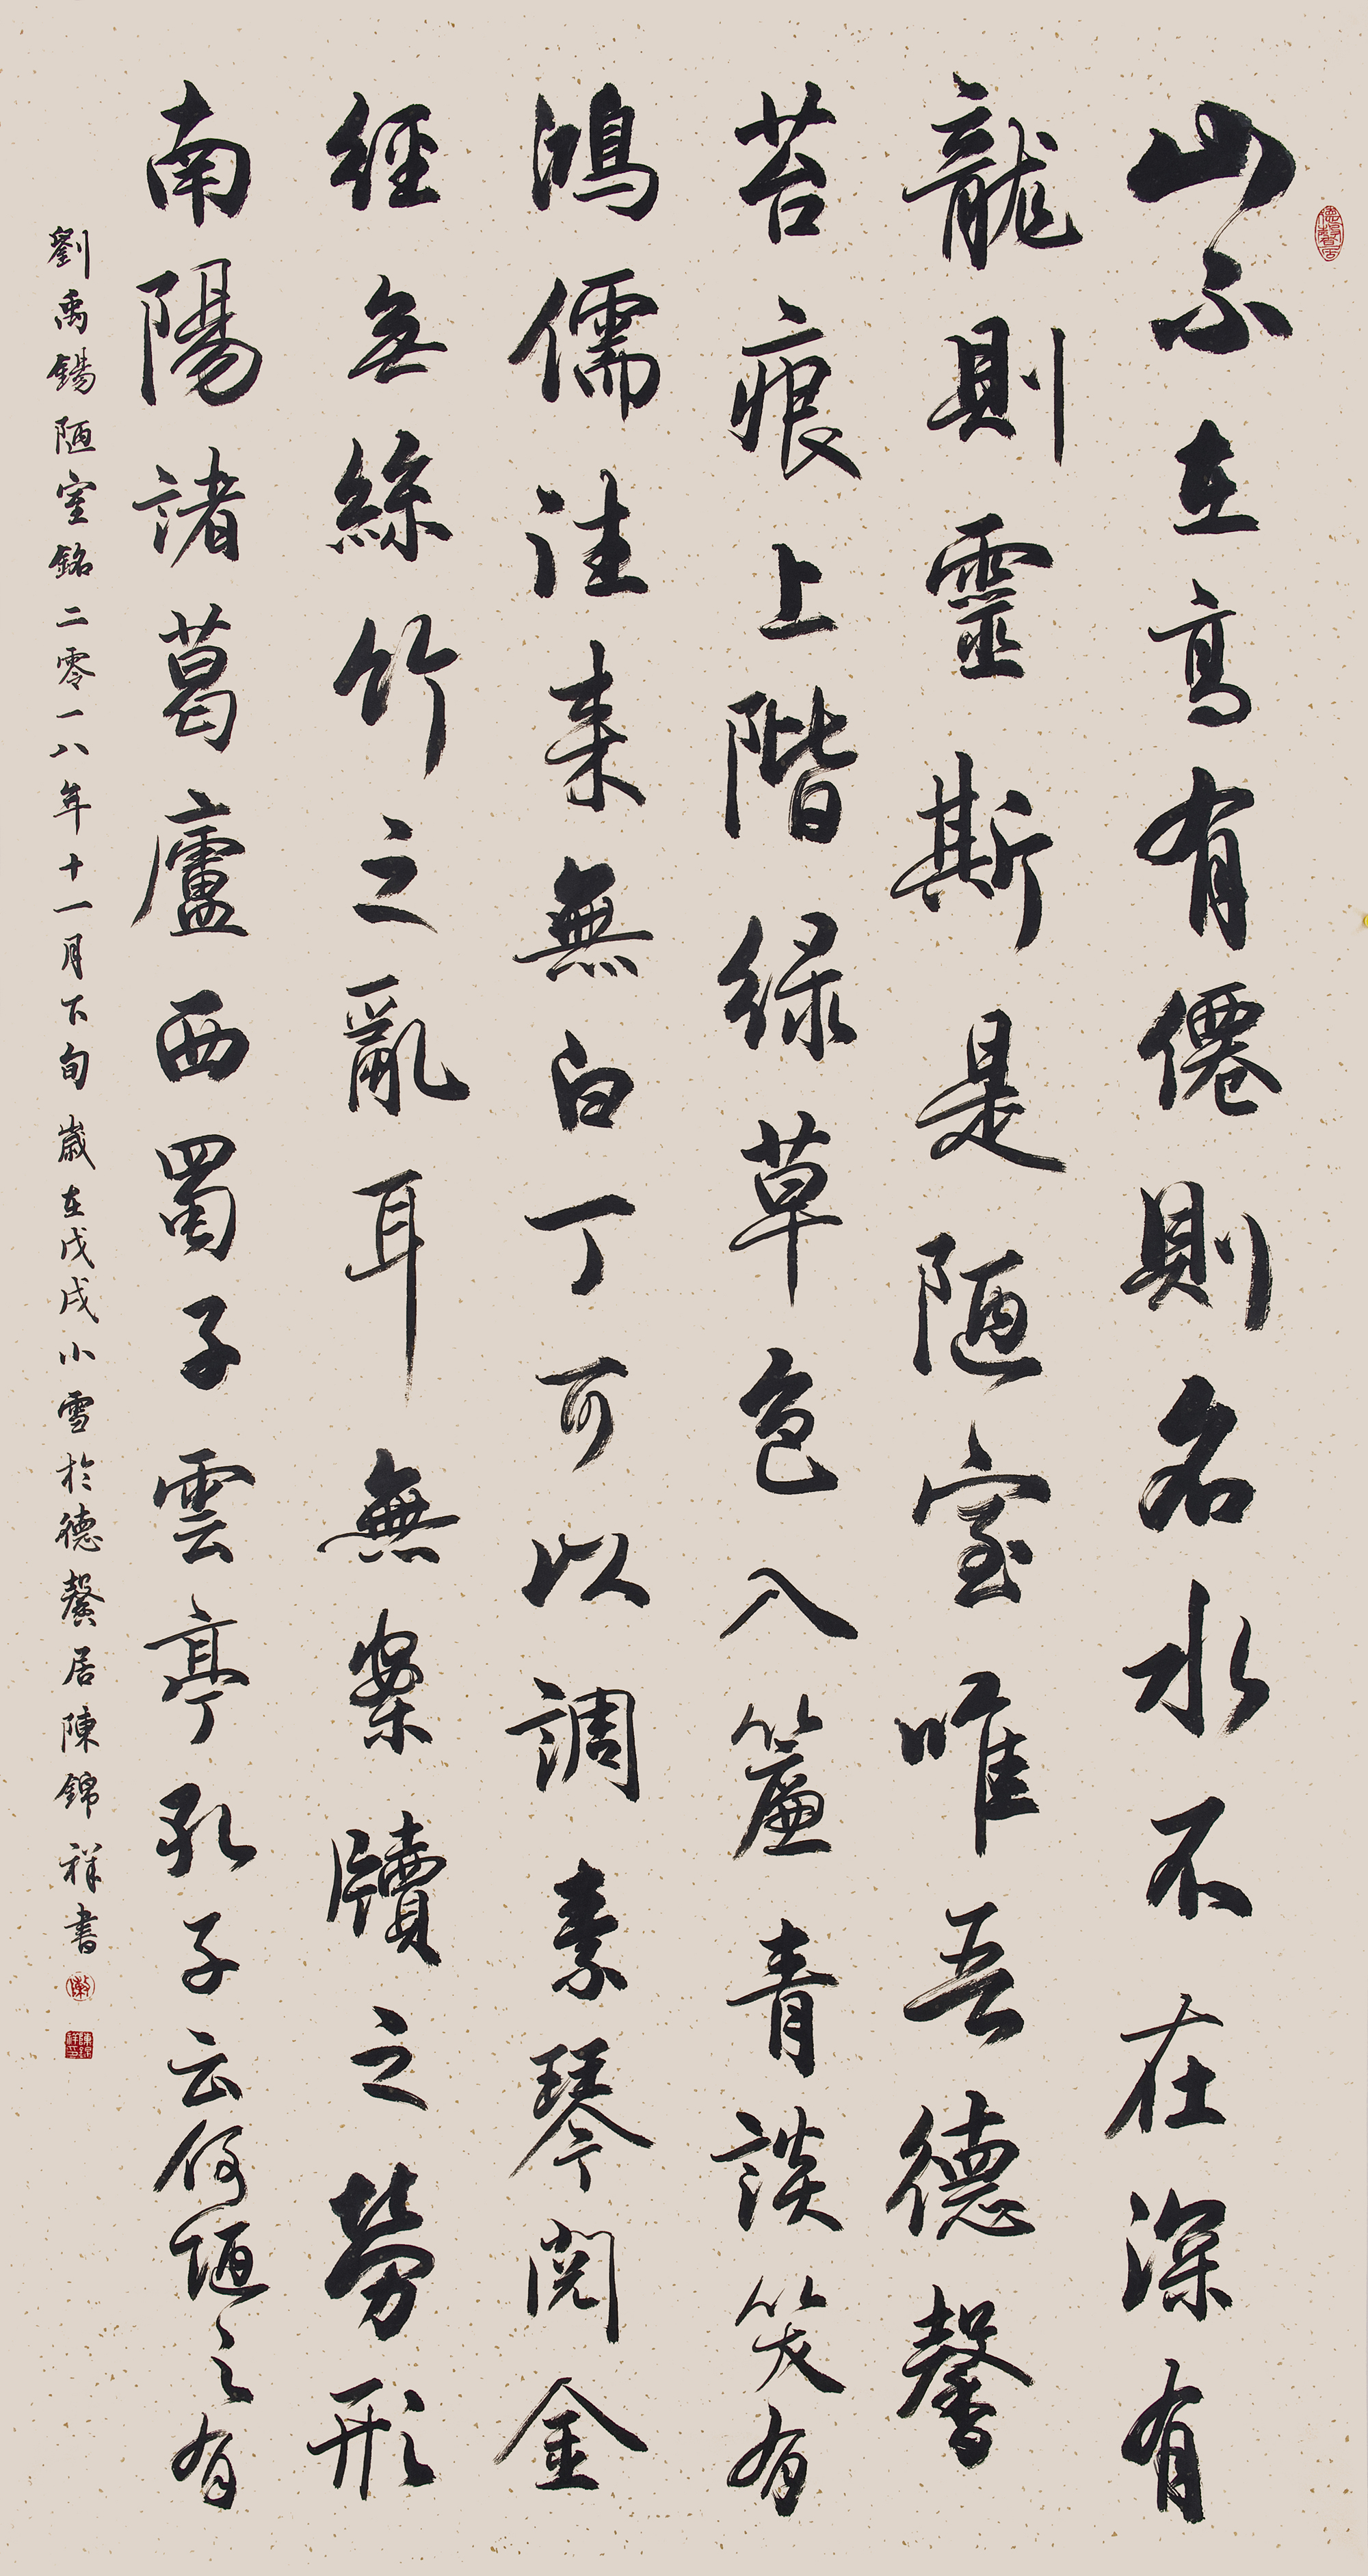 山不在高有僊則名水不在深有
龍則靈斯是陋室唯吾德馨
苔痕上階綠草色入簾青談笑有
鴻儒往来無白丁可以調素琴閱金
經無絲竹之亂耳無案牘之勞形
南陽諸葛廬西蜀子雲亭孔子云何陋之有
劉禹錫陋室銘二零一八年十一月下旬歲在戊戌小雪於德馨居陳錦祥書